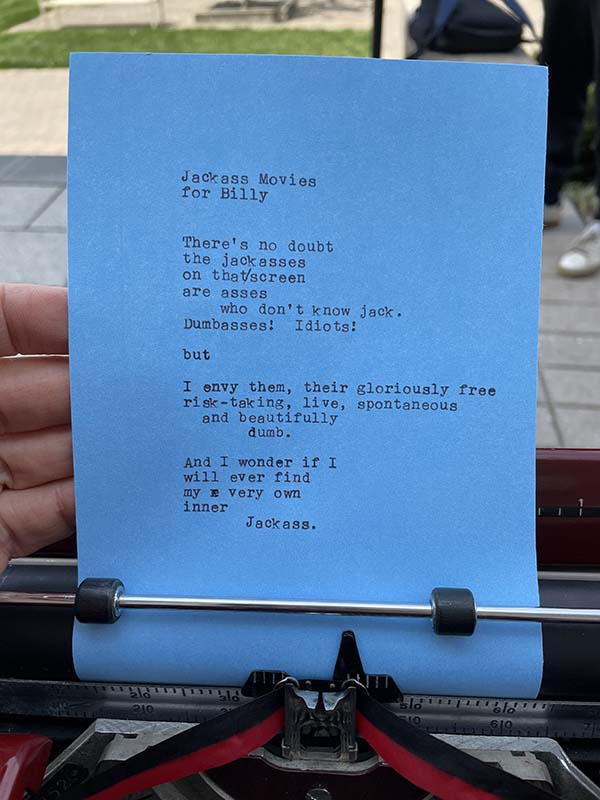 Jackass Movies
for Billy
There's no doubt
the jackasses
on that/screen
are asses
who don't know jack.
Dumbasses! Idiots!
but
I envy them, their gloriously free
risk-taking, live, spontaneous
and beautifully
dumb.
And I wonder if I
will ever find
my very own
inner
Jackass.